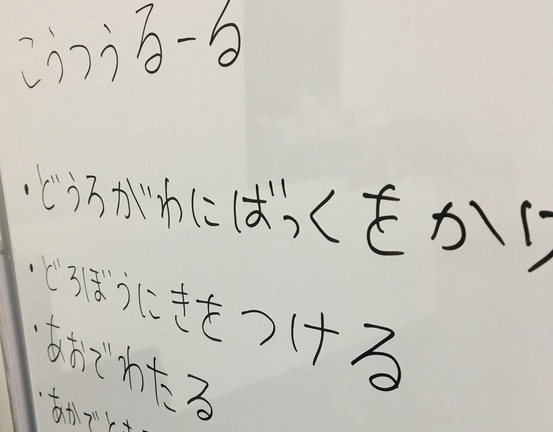 こうつうるーる
・どうろがわにばっくをかけ
・どろぼうにきをつける
・あおでわたる
・あかでとま